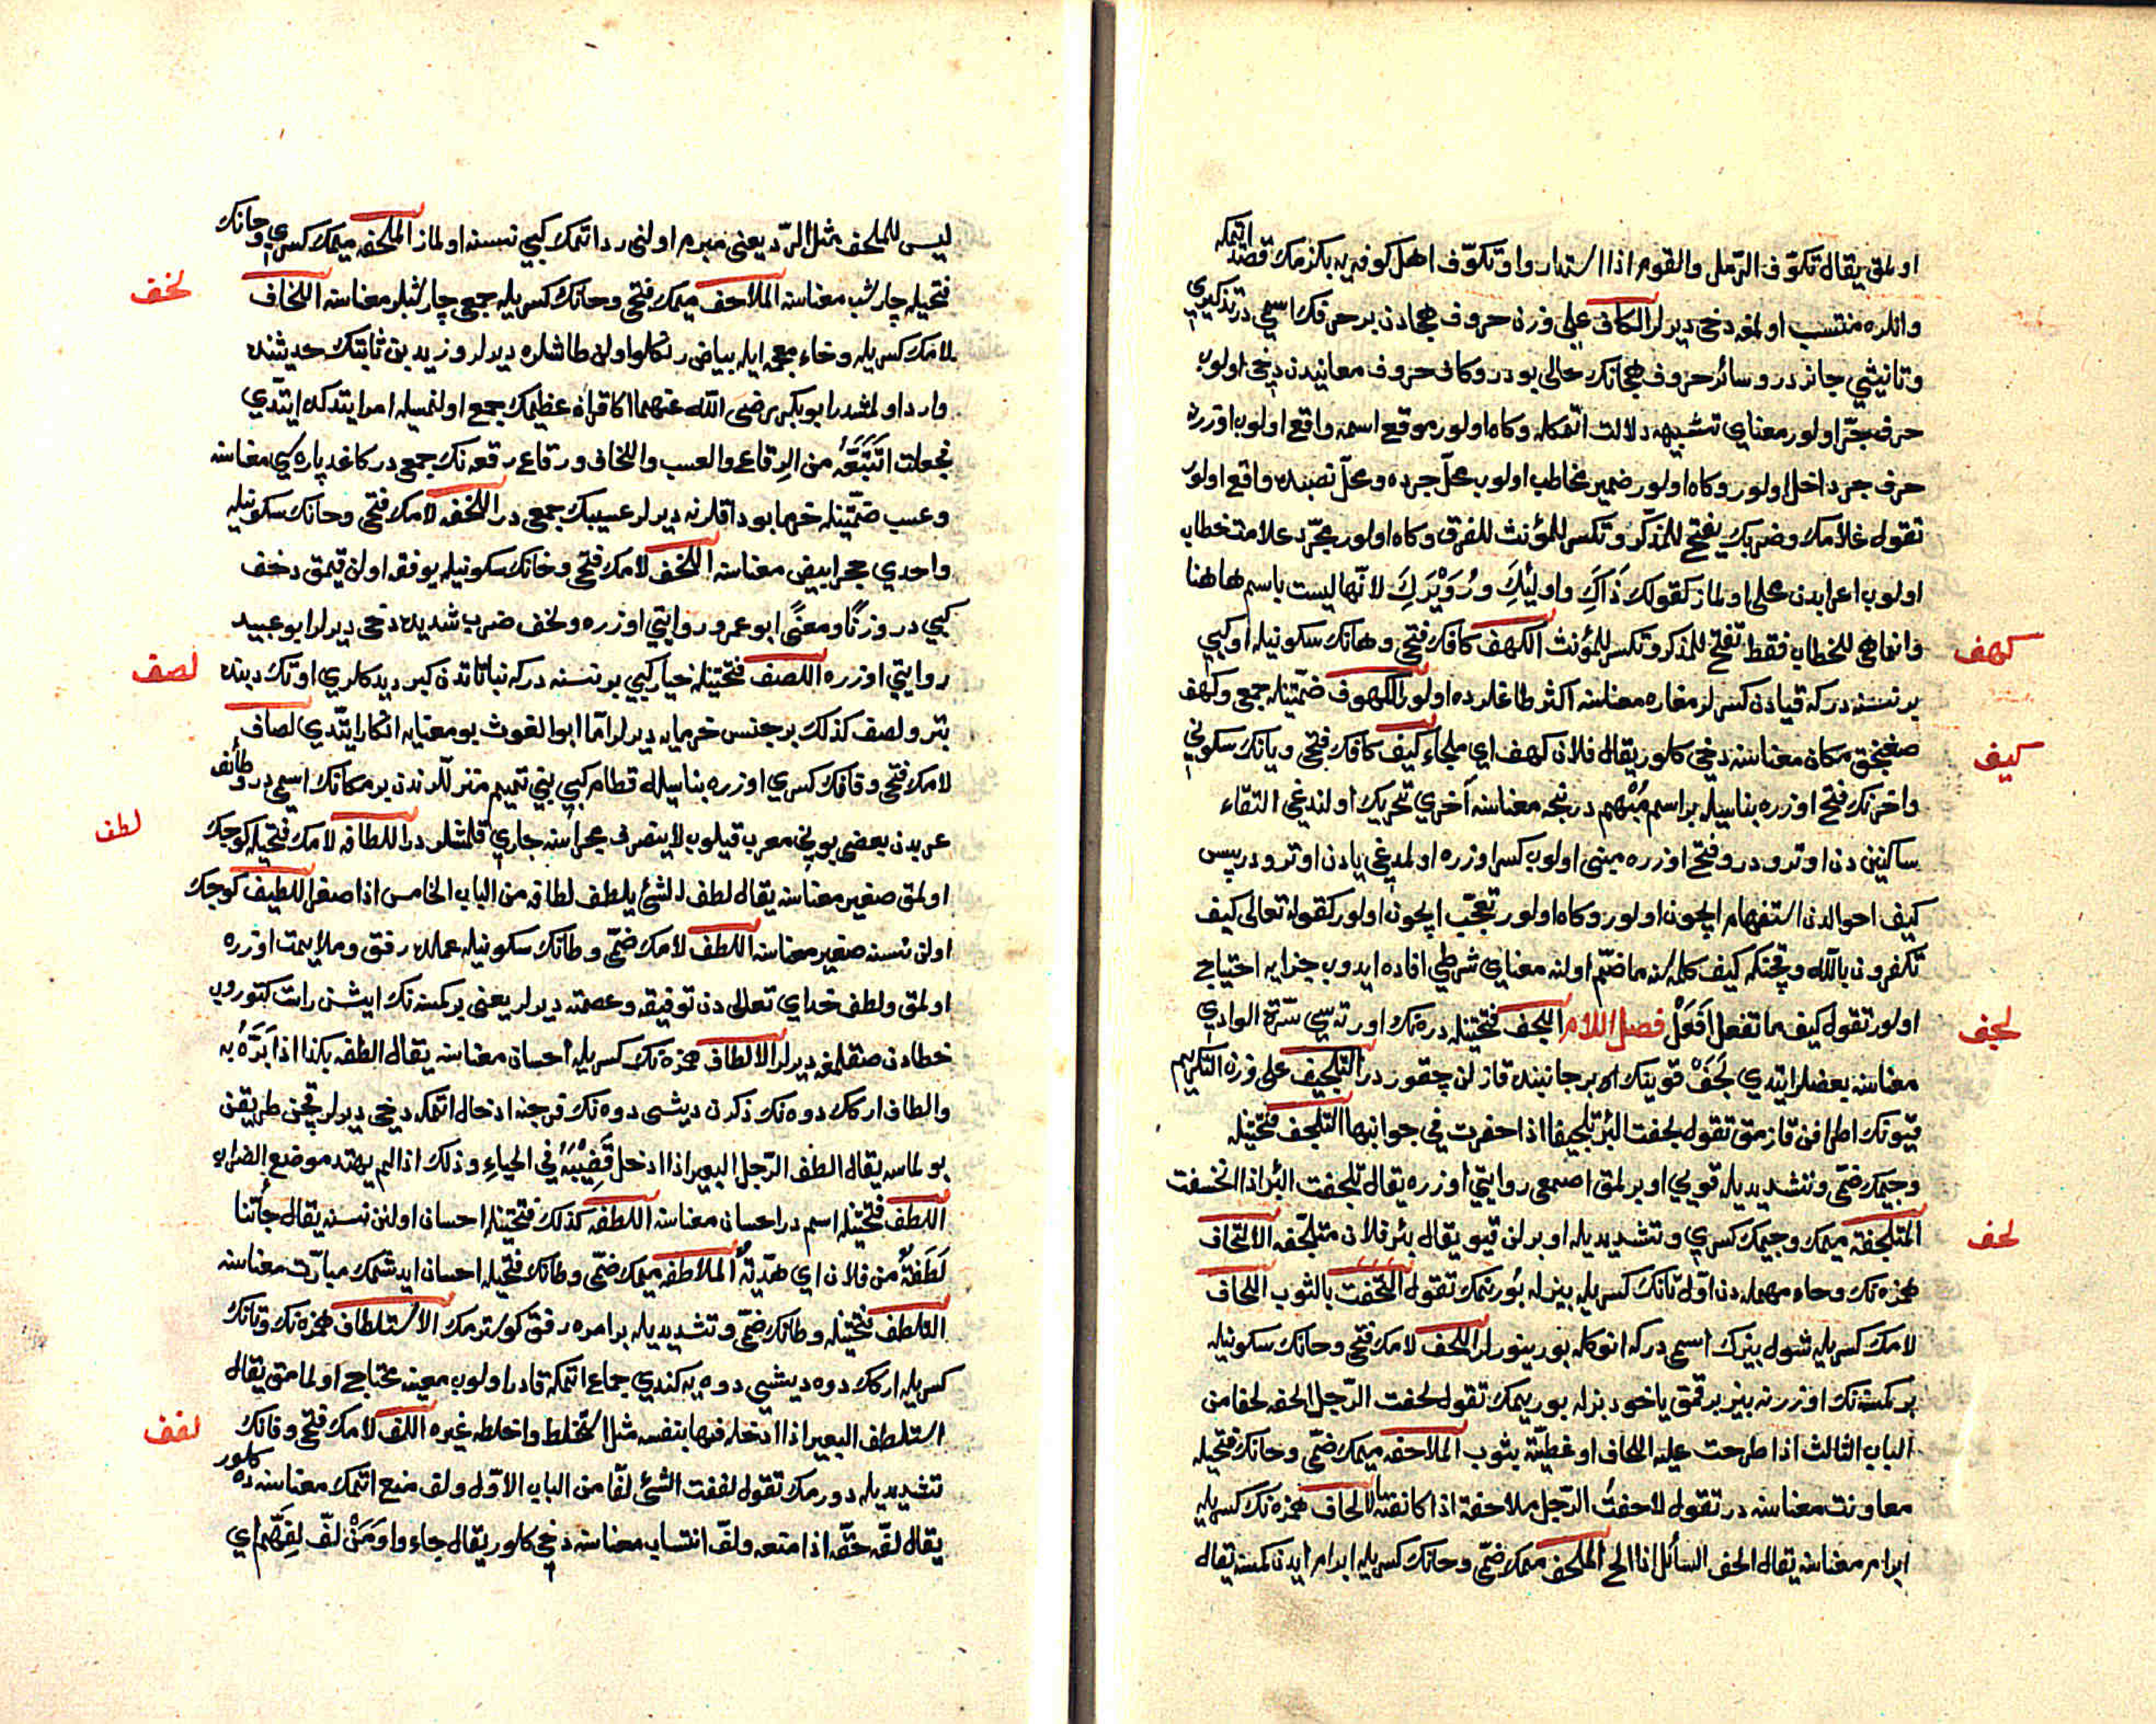 اولمق يقال تكوّف الرّمل والقوم اذا استداروا وتكوّف اهل كوفه يه بكزمك قصد اتمكه
وانلره منتسب اولمغه دخى ديرلر الكاف على وزن حروف هجادن بر حرفك اسمى در تذكيرى
وتانيثى جائز در وسائر حروف هجانك حالى بودر وكاف حروف معانيدن دخى اولوب
حرف جرّ اولور معناى تشبيهه دلالت اتمكله وكاه اولور موقع اسمه واقع اولوب اوزرينه
حرف جر داخل اولور وكاه اولور ضمير مخاطب اولوب محلّ جرده ومحلّ نصبده واقع اولور
تقول غلامك وضربك يفتح للمذكّر وتكسر للمؤنث للفرق وكاه اولور مجرّد علامت خطاب
اولوب اعرابدن محلى اولماز كقولك ذَاكَ واولئِكَ ورُوَيْدَكَ لانّها ليست باسم هاهنا
وانماهى للخطاب فقط تفتح للمذكر وتكسر للمؤنث الكهف كافك فتحى وهانك سكونيله او كبى
كهف
بر نسنه در كه قيادن كسرلر مغاره معناسنه اكثر طاغلرده اولور الكهوف ضمّتينله جمعى وكهف
صغنجق مكان معناسنه دخى كلور يقال فلان كهف اى ملجاء كيف كافك فتحى ويانك سكونى
كيف
واخرنك فتح اوزره بناسيله بر اسم مُبْهم در نيجه معناسنه اخرى تحريك اولندغى التقاء
ساكنين دن اوترو در وفتح اوزره مبنى اولوب كسر اوزره اولمدغى يادن اوترو در پس
كيف احوالدن استفهام ايچون اولور وكاه اولور تعجّب ايچون اولور كقوله تعالى كيف
تكفرون بالله وقچنكه كيف كلمه سنه ما ضمّ اولنه معناى شرطى افاده ايدوب جزايه احتياج
اولور تقول كيف ما تفعل اَفعَلْ فصل اللام اللجف فتحتينله دره نك اورته سى سُرّة الوادى
لجف
معناسنه بعضلر ايتدى لَجَفْ قوينك ايكى جانبنده قازلن چقور در التلجيف على وزن التكريم
قيونك اطرافن قازمق تقول لجفت البئر تلجيفا اذا حفرت فى جوانبها التلجف فتحتينله
وجيمك ضمّى وتشديديله قويى اوبرلمق اصمعى روايتى اوزره يقال تلجفت البئر اذا انخسفت
المتلجفة ميمك وجيمك كسرى وتشديديله اوبرلن قيو يقال بئر فلان متلجّفه الالتحاف
لحف
همزه نك وحاء مهمله دن اوّل تانك كسريله بيزله بُورنمك تقول التحفت بالثوب اللحاف
لامك كسريله شول بيزك اسمى در كه انوكله بورينورلر اللحف لامك فتحى وحانك سكونيله
بر كمسنه نك اوزرينه بيز برقمق ياخود بزله بوريمك تقول لحفت الرّجل الحفه لحفا من
الباب الثالث اذا طرحت عليه اللحاف او غطيّته بثوب الملاحفه ميمك ضمّى وحانك فتحيله
معاونت معناسنه در تقول لاحفتُ الرّجل ملاحفة اذا كانفته الالحاف همزه نك كسريله
ابرام معناسنه يقال الحف السائل اذا الح الملحف ميمك ضمّى وحانك كسريله ابرام ايدن كمسنه يقال
ليس للملحف مثل الرّد يعنى مبرم اولنى رد اتمك كبى نسنه اولماز الملحفه ميمك كسرى وحانك
فتحيله چارشب معناسنه الملاحف ميمك فتحى وحانك كسريله جمعى چارشبلر معناسنه اللخاف
لخف
لامك كسريله وخاء معجمه ايله بياض رنكلو اولن طاشلره ديرلر وزيد بن ثابتك حديثنده
وارد اولمشدر ابو بكر رضى الله عنهما اكا قرآن عظيمك جمع اولنمسيله امر ايتدكده ايتدى
فجعلت اتَتَبَّعُه من الرِقاع والعسب واللخاف ورقاع رقعه نك جمعى در كاغد پاره سى معناسنه
وعسب ضمّتينله خرما بوداقلرنه ديرلر عسيبك جمعى در اللخفه لامك فتحى وخانك سكونيله
واحدى حجر ابيض معناسنه اللخف لامك فتحى وخانك سكونيله يوفقه اولن قيمق دخف
كبى در وزنًا ومعنًى ابو عمرو روايتى اوزره ولخف ضرب شديده دخى ديرلر ابو عبيد
روايتى اوزره اللصف فتحتينله خيار كبى بر نسنه در كه نباتاتدن كبر ديدكلرى اوتك دبنده
لصف
بتر ولصف كذلك بر جنس خرمايه ديرلر امّا ابو الغوث بو معنايه انكار ايتدى لصاف
لامك فتحى وفانك كسرى اوزره بناسيله قطام كبى بنى تميم منزللرندن بر مكانك اسمى در وطائف
عربدن بعضى بونى معرب قيلوب لا ينصرف مجراسنه جارى قلمشلر در اللطافه لامك فتحيله كوچك
لطف
اولمق صغير معناسنه يقال لطف الشئ يلطف لطافه من الباب الخامس اذا صغر اللطيف كوچك
اولن نسنه صغير معناسنه اللطف لامك ضمّى وطانك سكونيله عملده رفق وملايمت اوزره
اولمق ولطف خداى تعالى دن توفيقه وعصمته ديرلر يعنى بر كمسنه نك ايشنى راست كتوروب
خطادن صقلمغه ديرلر الالطاف همزه نك كسريله احسان معناسنه يقال الطفه بكذا اذا بَرَّهُ به
والطاف اركك دوه نك ذكرن ديشى دوه نك فرجنه ادخال اتمكه دخى ديرلر قچن طريقنى
بولماسه يقال الطف الرّجل البعير اذا ادخل قَضِيْبَهُ فى الحياء وذلك اذا لم يهتد موضع الضراب
اللطف فتحتينله اسم در احسان معناسنه اللطفه كذلك فتحتينله احسان اولنن نسنه يقال جائتنا
لَطَفةٌ من فلان اى هدّيةٌ الملاطفه ميمك ضمّى وطانك فتحيله احسان ايدشمك مبارّت معناسنه
التلطف فتحتينله وطانك ضمّى وتشديديله بر امرده رفق كوسترمك الاستلطاف همزه نك وتانك
كسريله اركك دوه ديشى دوه يه كندى جماع اتمكه قادر اولوب معينه محتاج اولمامق يقال
استلطف البعير اذا ادخله فيها بنفسه مثل استخلط واخلطه غيره اللف لامك فتحى وفانك
لفف
تشديديله دورمك تقول لففت الشئ لفّا من الباب الاوّل ولف منع اتمك معناسنه ده كلور
يقال لفّه حقّه اذا منعه ولفّ انتساب معناسنه دخى كلور يقال جاءوا وَمَنْ لفّ لِفّهم اى